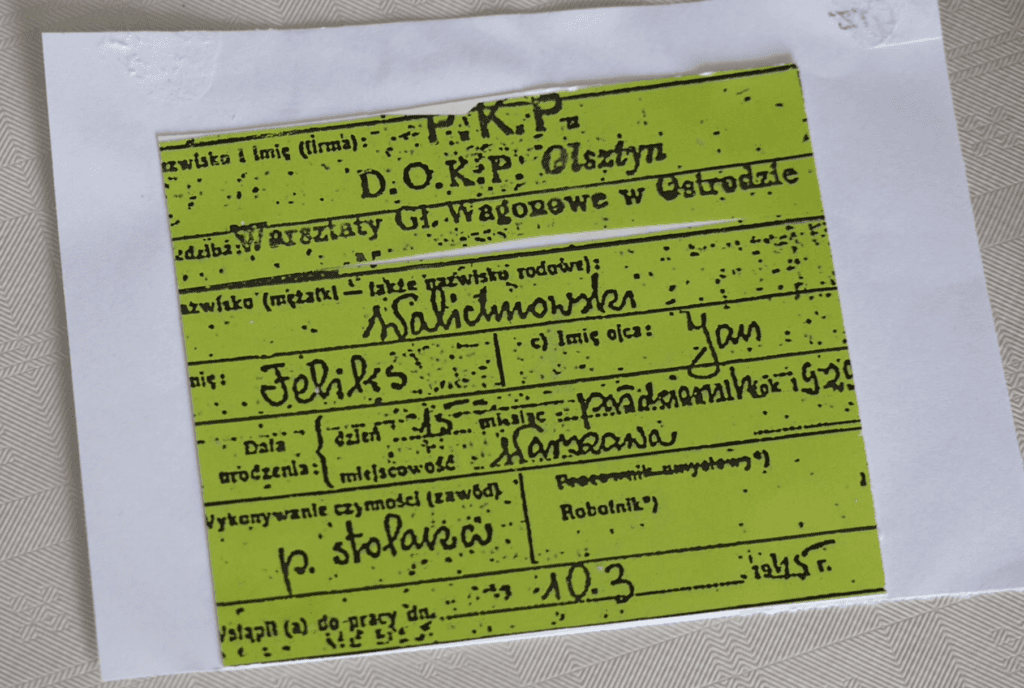 azwisko i imię (firma):
P.K.P.
D.O.K.P. Olsztyn
edziba: Warsztaty Gł. Wagonowe w Ostrodzie
azwisko (mężatki — także nazwisko rodowe):
Walichnowski
nię: Feliks c) Imię ojca: Jan
Data urodzenia: dzień 15 miesiąc październik rok 1929
miejscowość Warszawa
Wykonywanie czynności (zawód) Pracownik umysłowy*)
p. stolarza Robotnik*)
Wstąpił (a) do pracy dn. 10.3 1945 r.